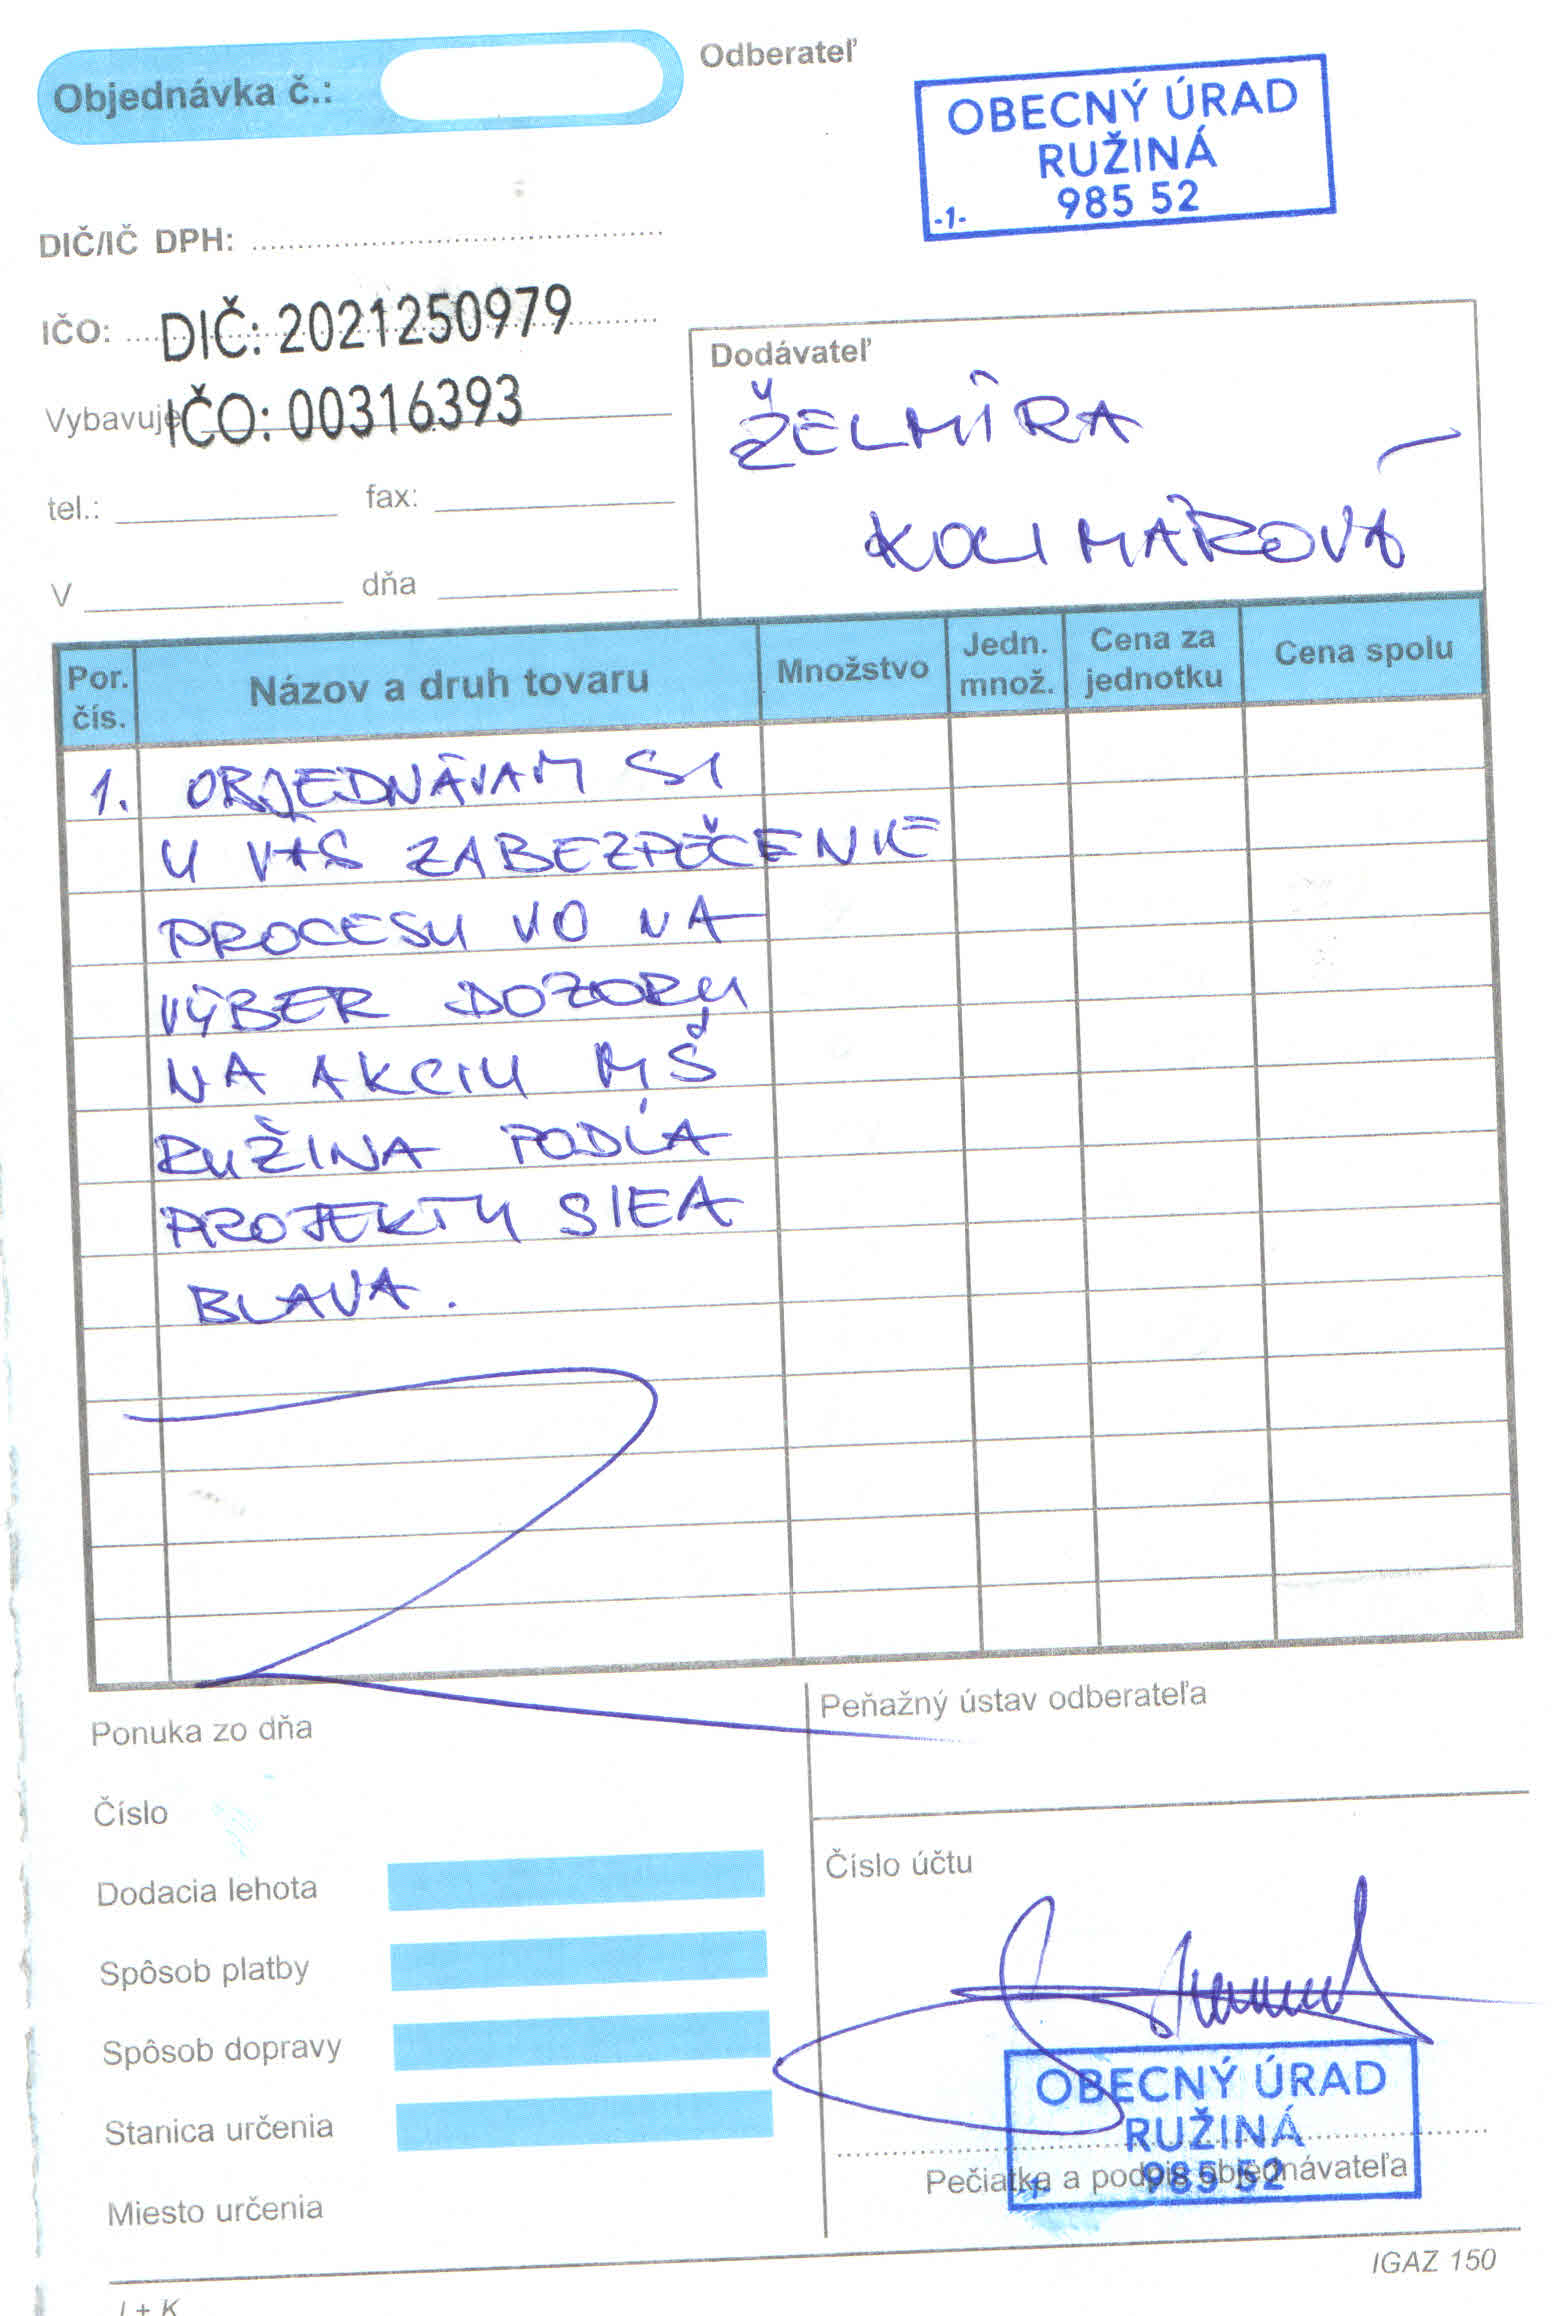 Objednávka č.:
Odberateľ
OBECNÝ ÚRAD
RUŽINÁ
985 52
-1-
DIČ/IČ DPH:
IČO:
DIČ: 2021250979
Vybavuje
IČO: 00316393
tel.:
fax:
V
dňa
Dodávateľ
ŽELMÍRA
Por. čís.
Názov a druh tovaru
Množstvo
Jedn. množ.
Cena za jednotku
Cena spolu
1. OBJEDNÁVAM SI
U VÁS ZABEZPEČENIE
PROCESU VO NA
VÝBER DOZORU
NA AKCIU MŠ
RUŽINA PODĽA
PROJEKTU SIEA
BLAVA.
Ponuka zo dňa
Číslo
Dodacia lehota
Spôsob platby
Spôsob dopravy
Stanica určenia
Miesto určenia
Peňažný ústav odberateľa
Číslo účtu
OBECNÝ ÚRAD
RUŽINÁ
985 52
Pečiatka a podpis objednávateľa
IGAZ 150
I + K